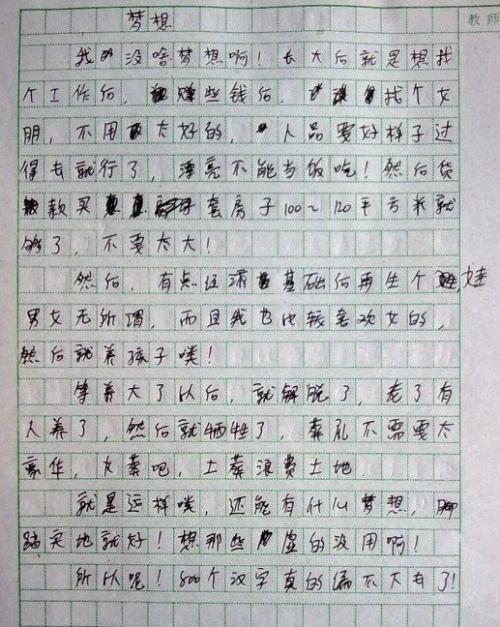 教师
梦想
我没啥梦想啊！长大后就是想找
个工作后，赚些钱后，找个女
朋，不用太好的，人品要好样子过
得去就行了，漂亮不能当饭吃！然后货
款买套房子100~120平方米就
够了，不要太大！
然后，有点经济基础后再生个娃
男女无所谓，而且我也比较喜欢女的，
然后就养孩子喽！
等养大了以后，就解脱了，老了有
人养了，然后就牺牲了，葬礼不需要太
豪华，火葬吧，土葬浪费土地
就是这样喽，还能有什么梦想，脚
踏实地就好！想那些虚的没用啊！
所以呢！800个汉字真的编不下去了！